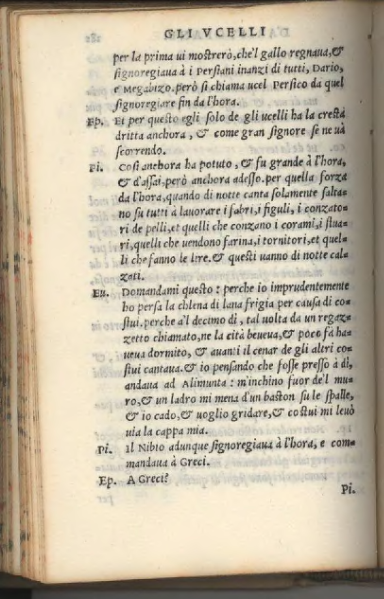 GLI VCELLI
per la prima ui mostrerò, che'l gallo regnaua, &
signoregiaua à i Persiani inanzi di tutti, Dario,
e Megabizo. però si chiama ucel Persico da quel
signoregiare fin da l'hora.
Ep. Et per questo egli solo de gli ucelli ha la cresta
dritta anchora, & come gran signore se ne uà
scorrendo.
Pi. Cosi anchora ha potuto, & fu grande à l'hora,
& d'assai, però anchora adesso. per quella forza
da l'hora, quando di notte canta solamente salta-
no su tutti à lauorare i fabri, i figuli, i conzato-
ri de pelli, et quelli che conzano i corami, i stua-
ri, quelli che uendono farina, i tornitori, et quel-
li che fanno le lire. & questi uanno di notte cal-
zati.
Eu. Domandami questo: perche io imprudentemente
ho persa la chlena di lana frigia per causa di co-
stui, perche à'l decimo dì, tal uolta da un regaz-
zetto chiamato, ne la cità beueua, & poco fa ha-
ueua dormito, & auanti il cenar de gli altri co-
stui cantaua. & io pensando che fosse presso à dì,
andaua ad Alimunta: m'inchino fuor de'l mu-
ro, & un ladro mi mena d'un baston su le spalle,
& io cado, & uoglio gridare, & costui mi leuò
uia la cappa mia.
Pi. Il Nibio adunque signoregiaua à l'hora, e com-
mandaua à Greci.
Ep. A Greci?
Pi.